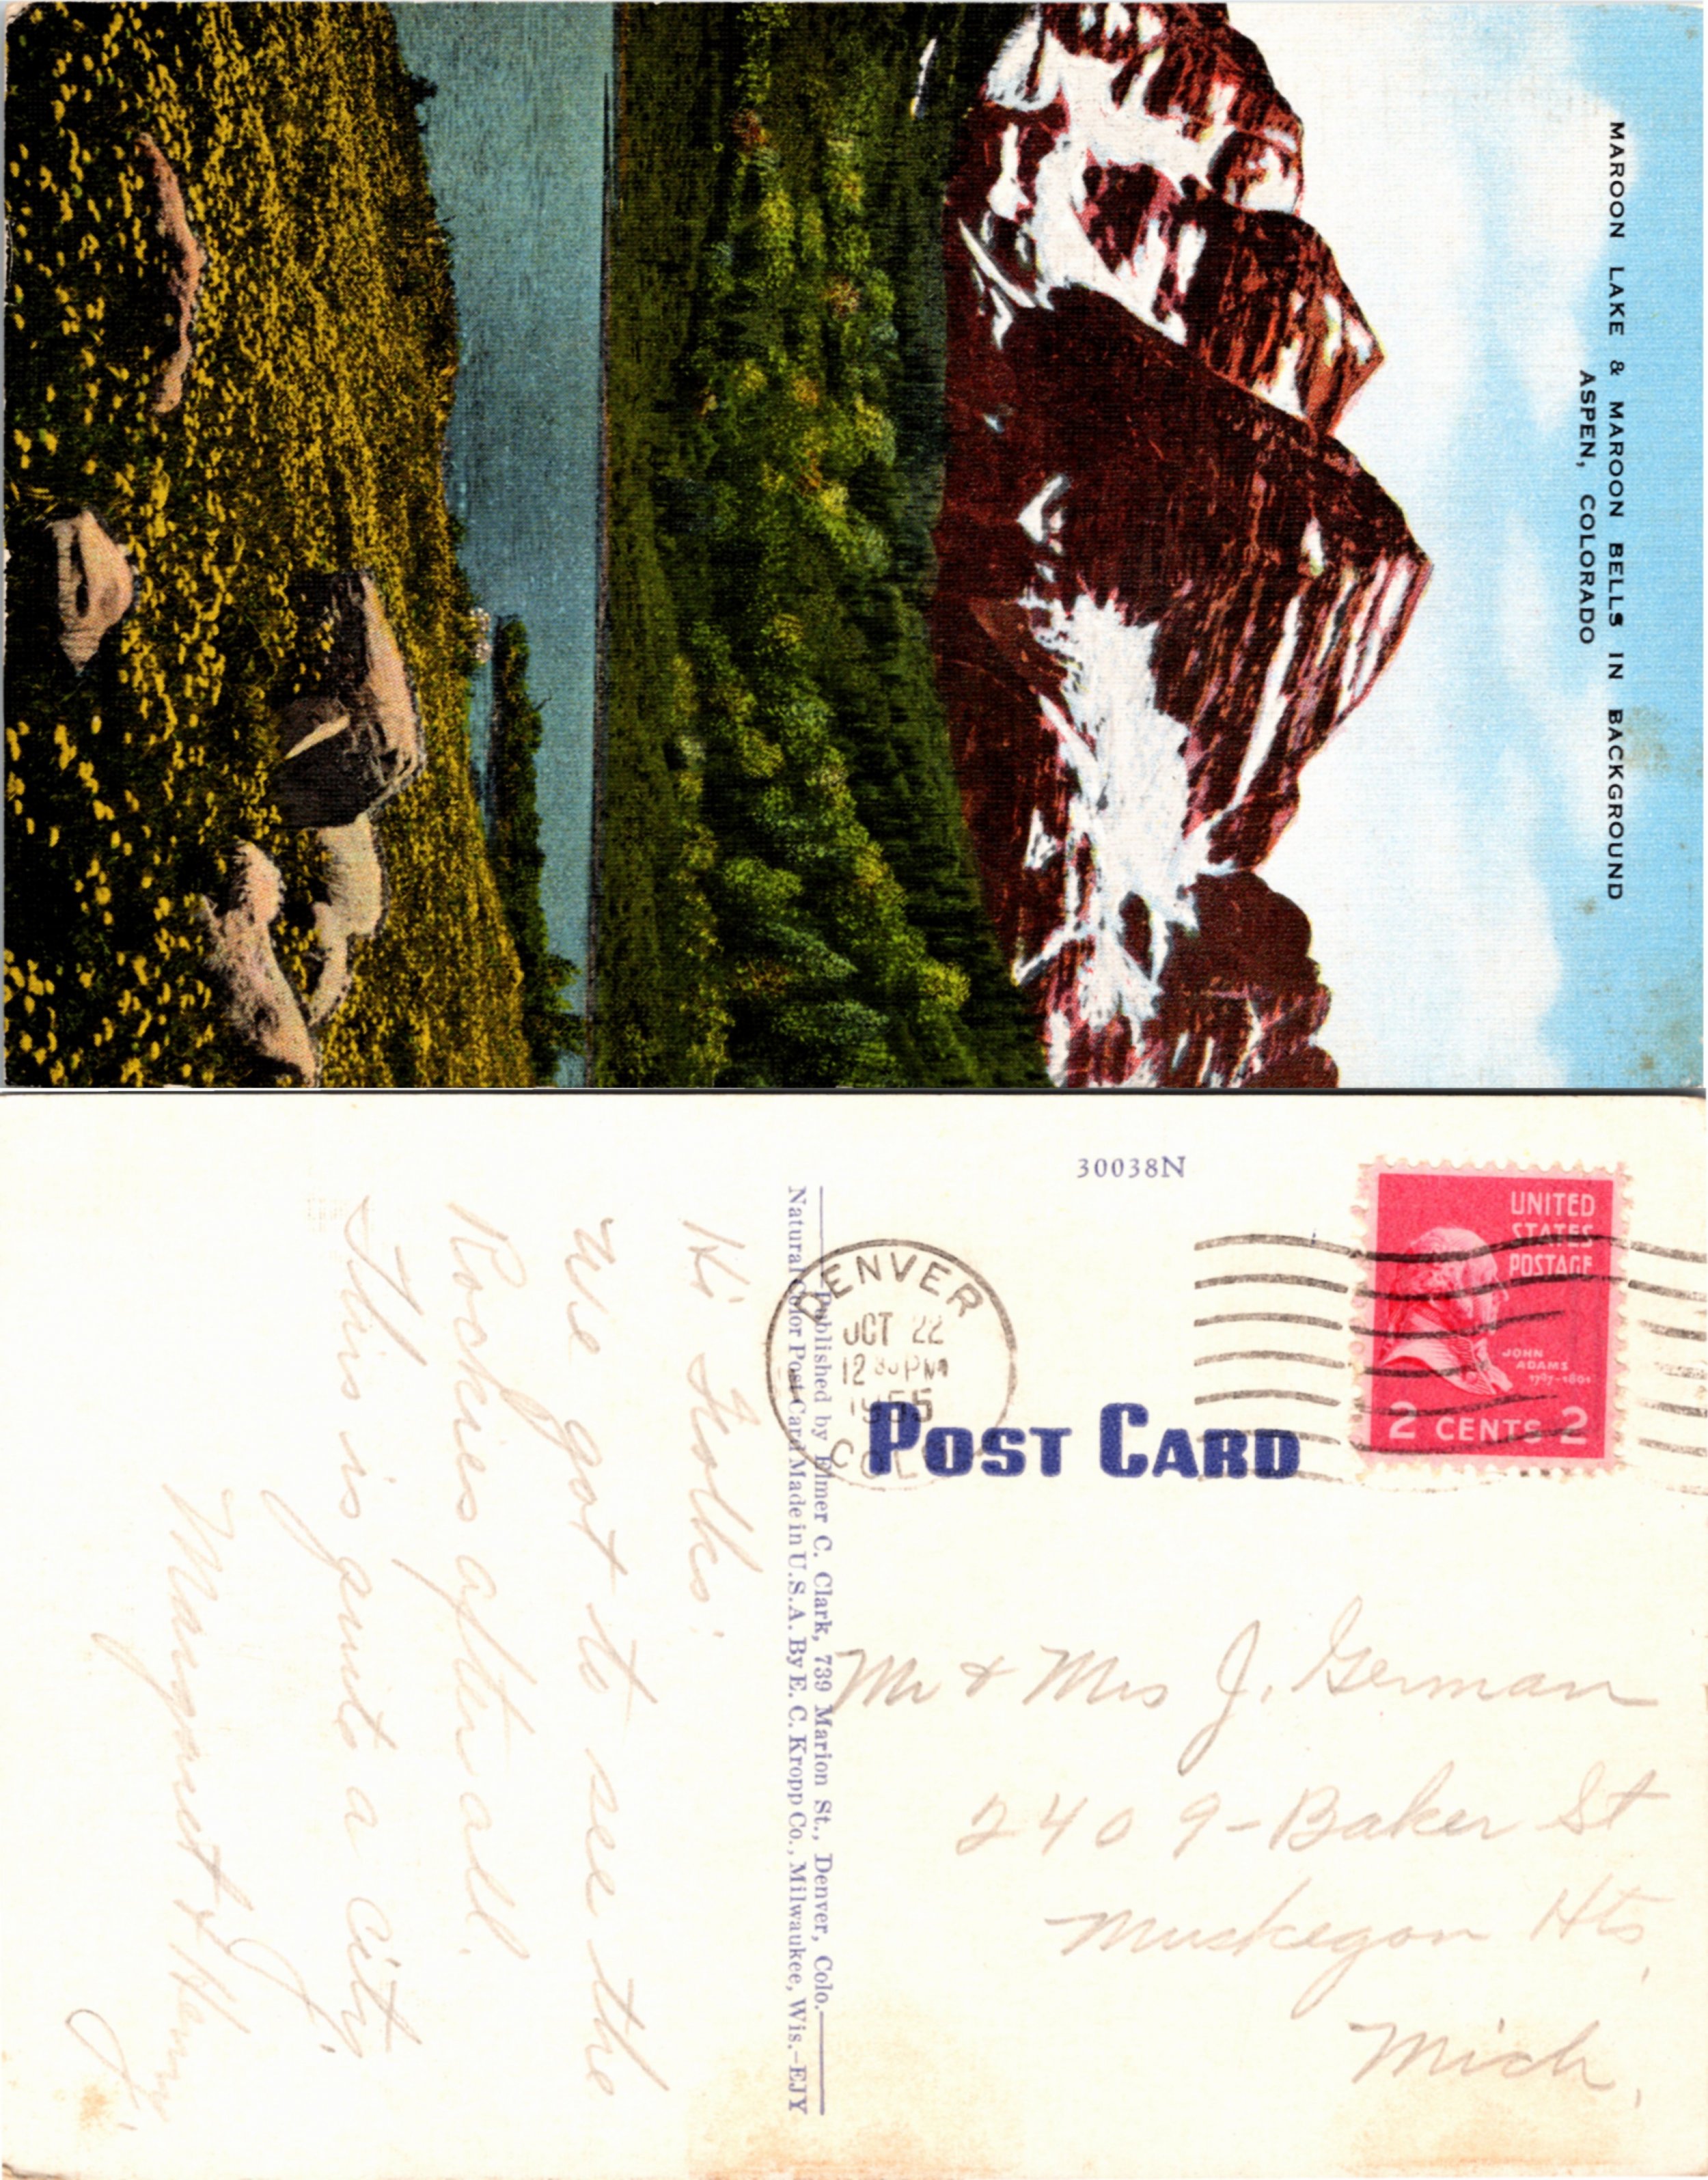 MAROON LAKE & MAROON BELLS IN BACKGROUND
ASPEN, COLORADO
30038N
UNITED
STATES
POSTAGE
JOHN
ADAMS
1797-1801
2 CENTS 2
DENVER
OCT 22
12 30 PM
1955
COLO
POST CARD
Published by Elmer C. Clark, 739 Marion St., Denver, Colo.
Natural Color Post Card Made in U.S.A. By E. C. Kropp Co., Milwaukee, Wis.-EJY
Hi Folks:
We got to see the
Rockies after all.
This is quite a city
Margaret & Harry
Mr & Mrs J. German
2409-Baker St
Muskegon Hts,
Mich,